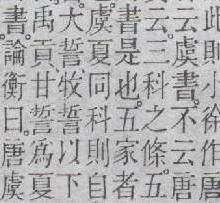 此則小徐作唐
云虞書不云唐
云三科之條五
書是也。五家者
虞夏同科則自
大誓牧誓以下
禹貢甘誓為夏
書。論衡曰。唐虞